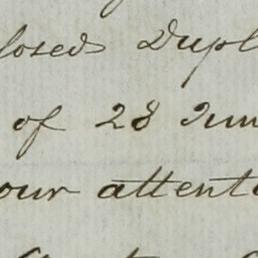 losed Dupl
of 28 June
our attent